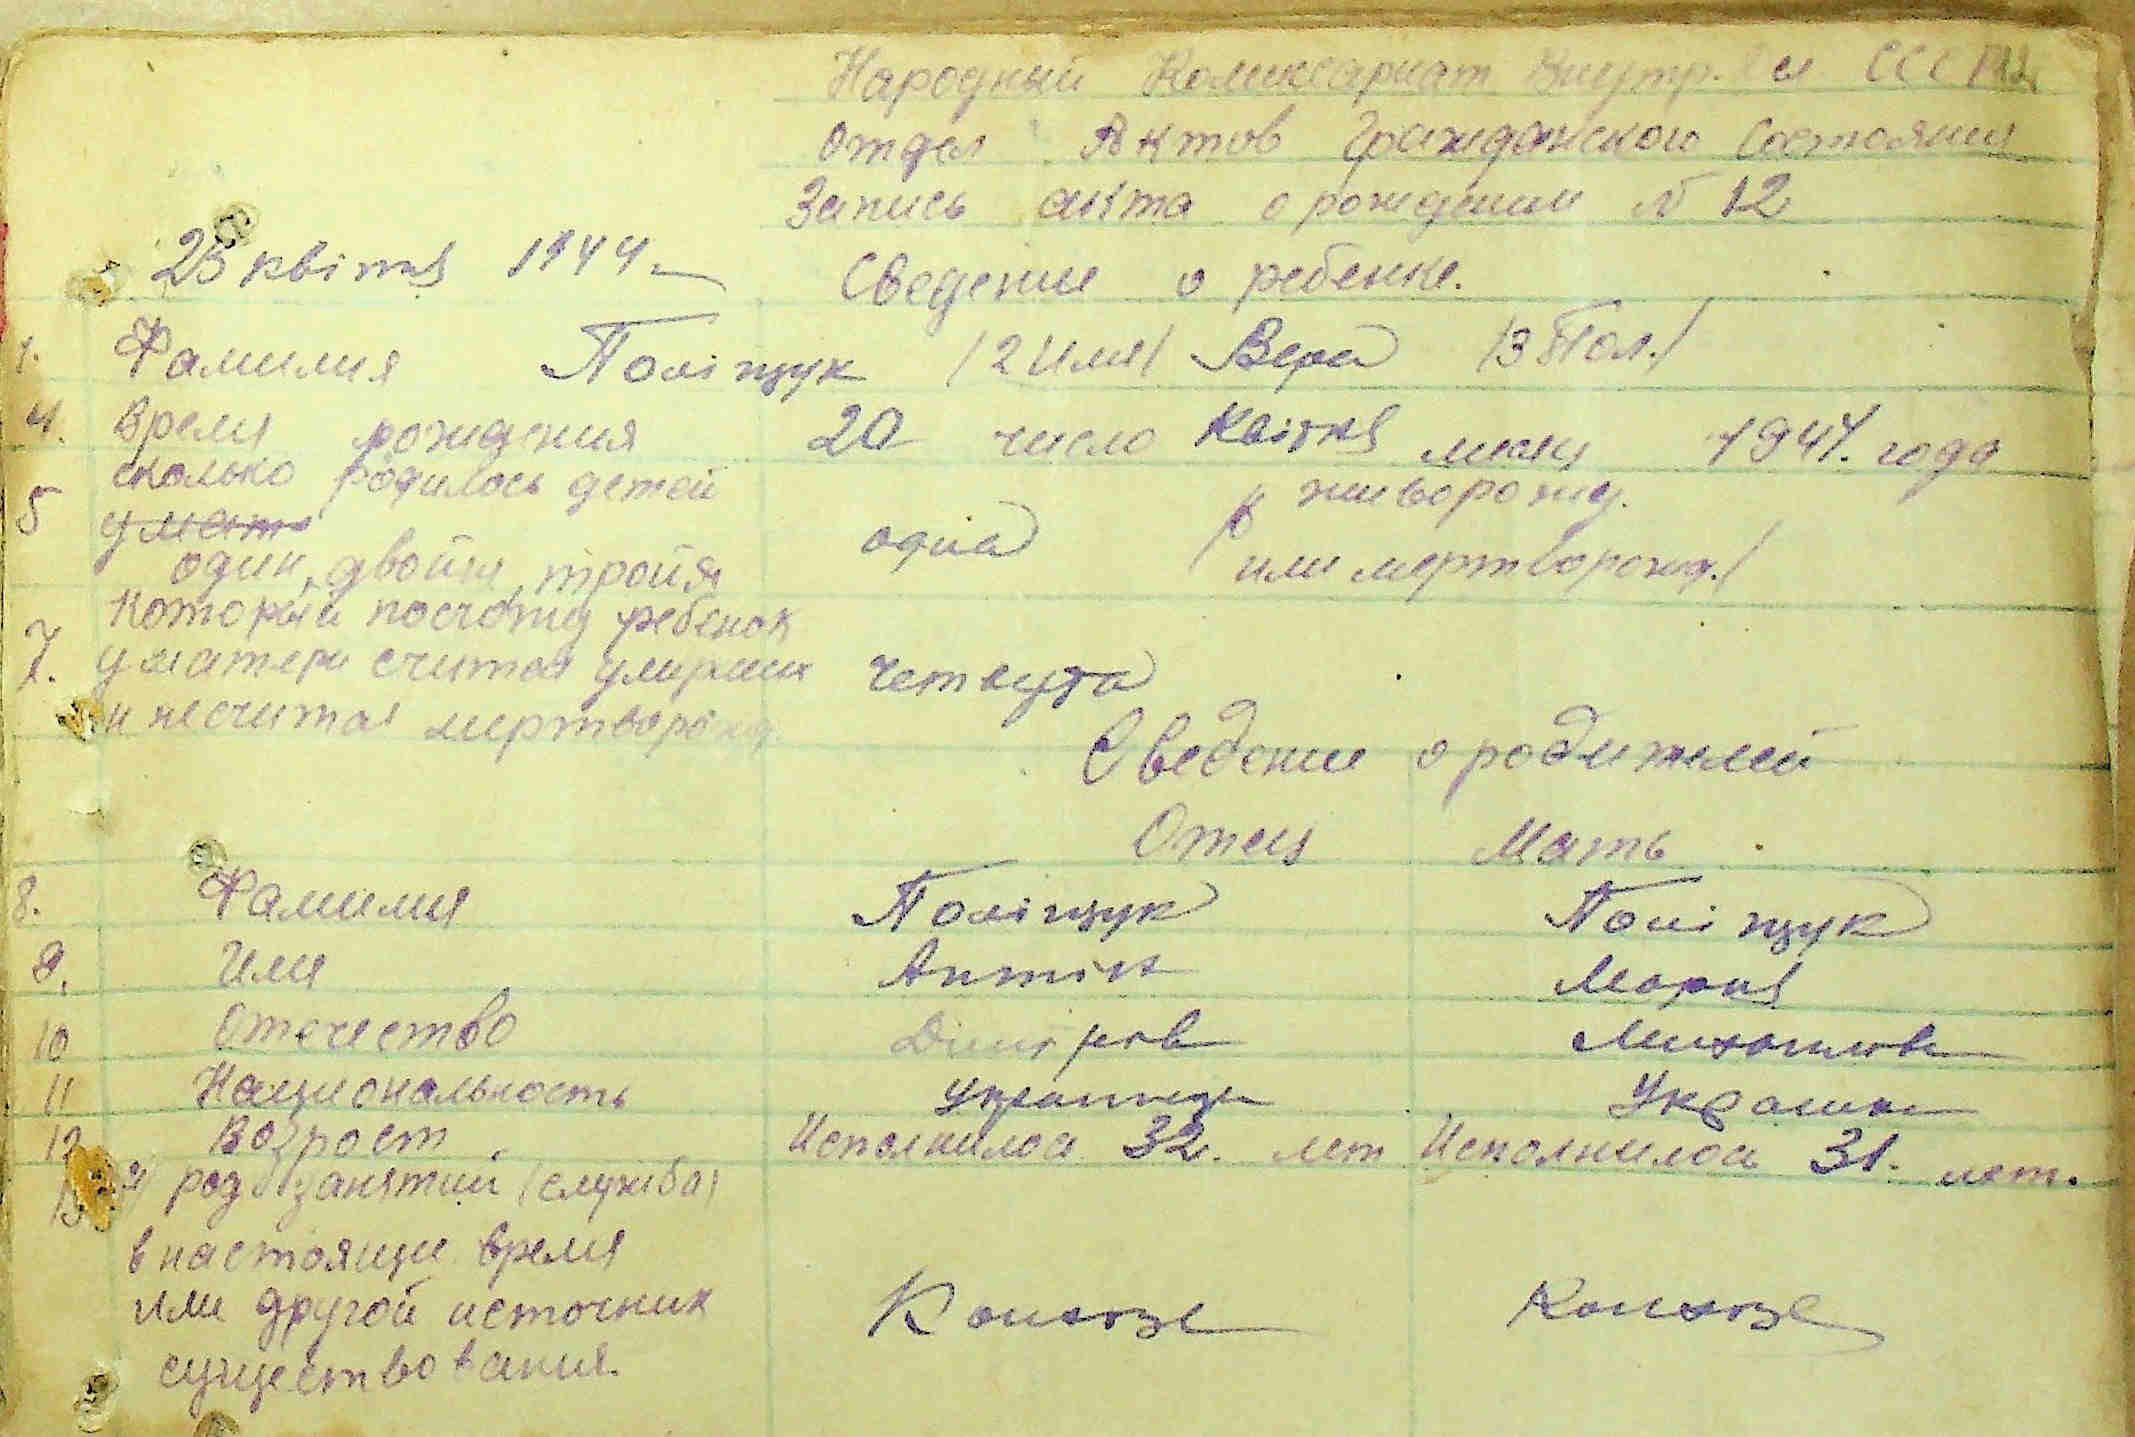 Народный Комиссариат Внутр. Дел СССР
Отдел Актов Гражданского Состояния
Запись акта о рождении № 12
25 квітня 1944
Сведение о ребенке.
1. Фамилия Поліщук /2 Имя/ Вера /3 Пол./
4. Время рождения 20 число квітня месяц 1944. года
5 сколько родилось детей живорожд.
у мат
один, двойня, тройня одна или мертворожд./
который посчоту ребенок
7. у матери считая умерших четверта
и несчитая мертворожд
Сведение о родителей
Отец Мать
8. Фамилия Поліщук Поліщук
9. Имя Антін Мария
10 Отечество Михайловн
11 Национальность Українець Украинк
12 Возрост Исполнилос 32. лет Исполнилос 31. лет.
13 а) род занятий (служба)
в настоящие время
или другой источник Колхозн Колхозн
существования.